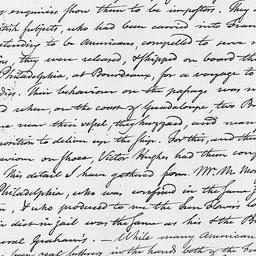 enquiries shew them to be impostors. They
British subjects, who had been carried into Fran
pretending to be Americans, compelled to serve
they were released, & shipped on board the
Philadelphia, at Bourdeaux, for a voyage to
Indies. Their behaviour on the passage was
and when, on the coast of Guadaloupe two B
near their vessel, they huzzaed, and
disposition to deliver up the ship. For this, and their
behaviour on shore, Victor Hughes had them conf
This detail I have gathered from Mr. Mc
Philadelphia, who was confined in the same
& who produced to me the Gen. Orders
diet in jail was the same as his & the B
General Graham's. — While many American